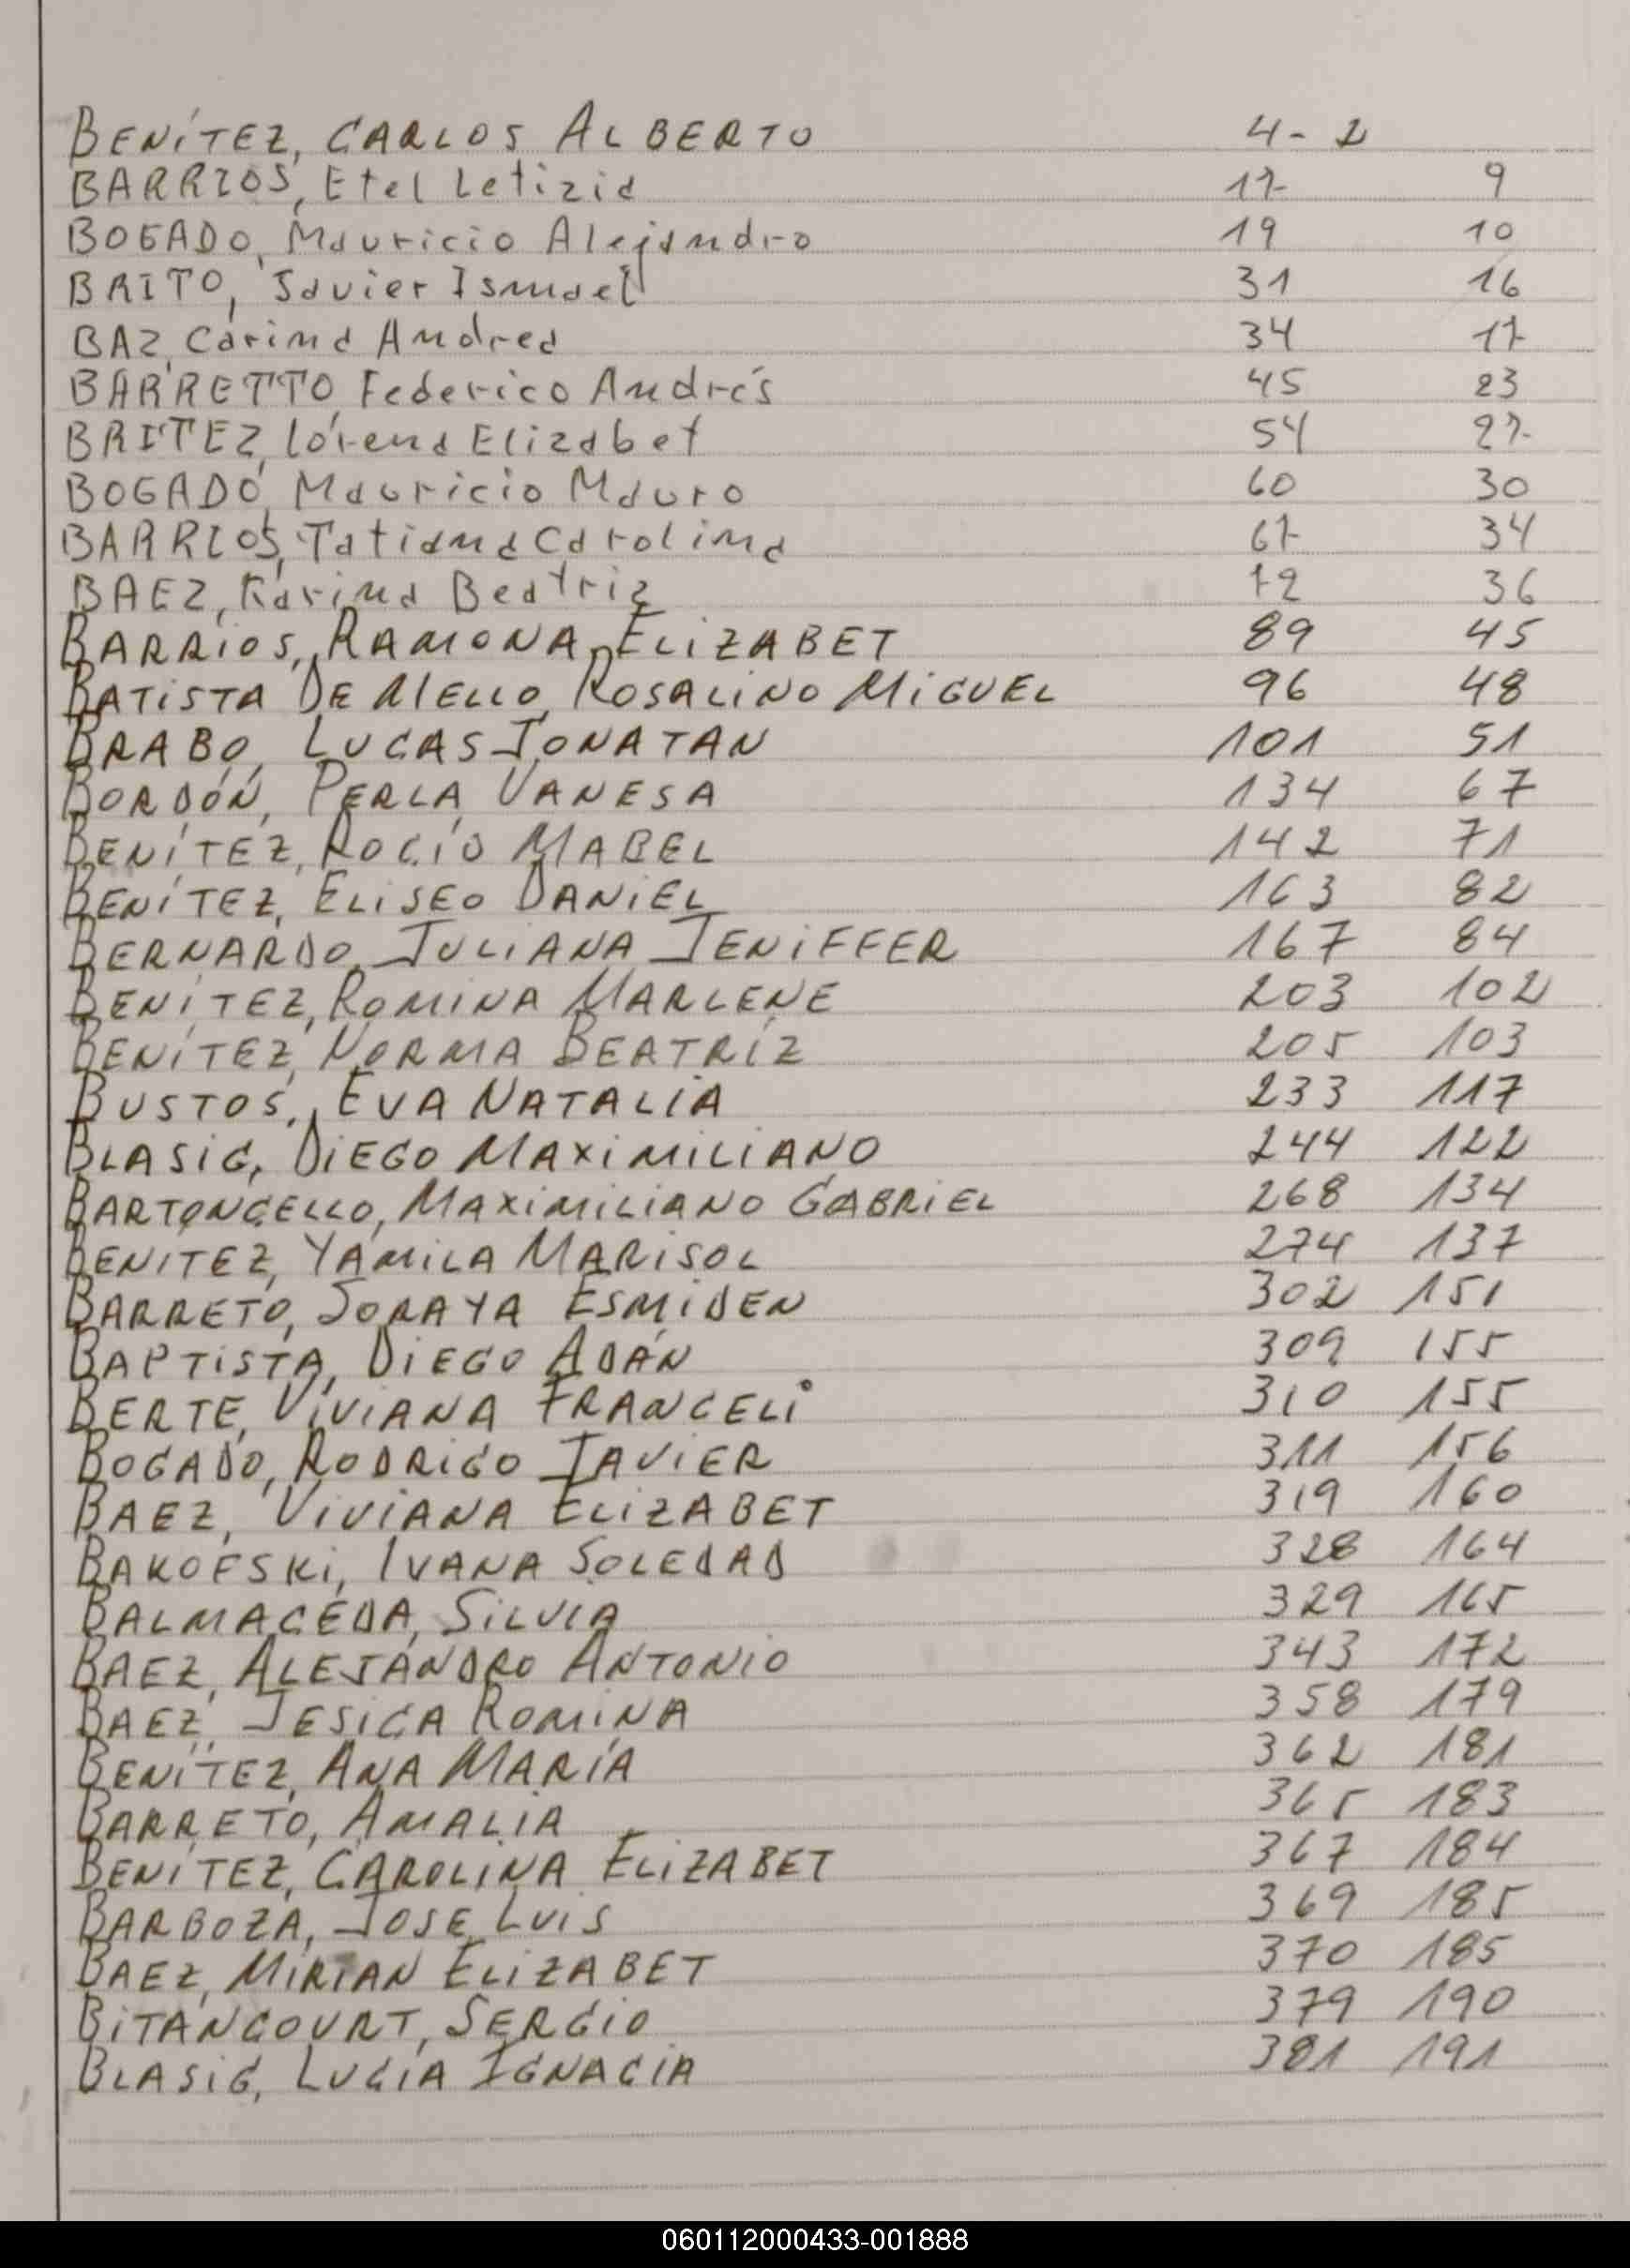 BENÍTEZ, CARLOS ALBERTO 4 - 2
BARRIOS, Etel Letizia 17 9
BOGADO, Mauricio Alejandro 19 10
BRITO, Javier Ismael 31 16
BAZ, Carina Andrea 34 17
BARRETTO, Federico Andrés 45 23
BRITEZ, Lorena Elizabet 54 27
BOGADO, Mauricio Mauro 60 30
BARRIOS, Tatiana Carolina 67 34
BAEZ, Karina Beatriz 72 36
BARRIOS, RAMONA ELIZABET 89 45
BATISTA DE MELLO, ROSALINO MIGUEL 96 48
BRABO, LUCAS JONATAN 101 51
BORDÓN, PERLA VANESA 134 67
BENÍTEZ, ROCÍO MABEL 142 71
BENÍTEZ, ELISEO DANIEL 163 82
BERNARDO, JULIANA JENIFFER 167 84
BENÍTEZ, ROMINA MARLENE 203 102
BENÍTEZ, NORMA BEATRÍZ 205 103
BUSTOS, EVA NATALIA 233 117
BLASIG, DIEGO MAXIMILIANO 244 122
BARTONCELLO, MAXIMILIANO GABRIEL 268 134
BENITEZ, YAMILA MARISOL 274 137
BARRETO, SORAYA ESMIDEN 302 151
BAPTISTA, DIEGO ADÁN 309 155
BERTE, VIVIANA FRANCELI 310 155
BOGADO, RODRIGO JAVIER 311 156
BAEZ, VIVIANA ELIZABET 319 160
BAKOFSKI, IVANA SOLEDAD 328 164
BALMACEDA, SILVIA 329 165
BAEZ, ALEJANDRO ANTONIO 343 172
BAEZ, JESICA ROMINA 358 179
BENÍTEZ, ANA MARÍA 362 181
BARRETO, AMALIA 365 183
BENÍTEZ, CAROLINA ELIZABET 367 184
BARBOZA, JOSE LUIS 369 185
BAEZ, MIRIAN ELIZABET 370 185
BITANCOURT, SERGIO 379 190
BLASIG, LUCIA IGNACIA 381 191
060112000433-001888